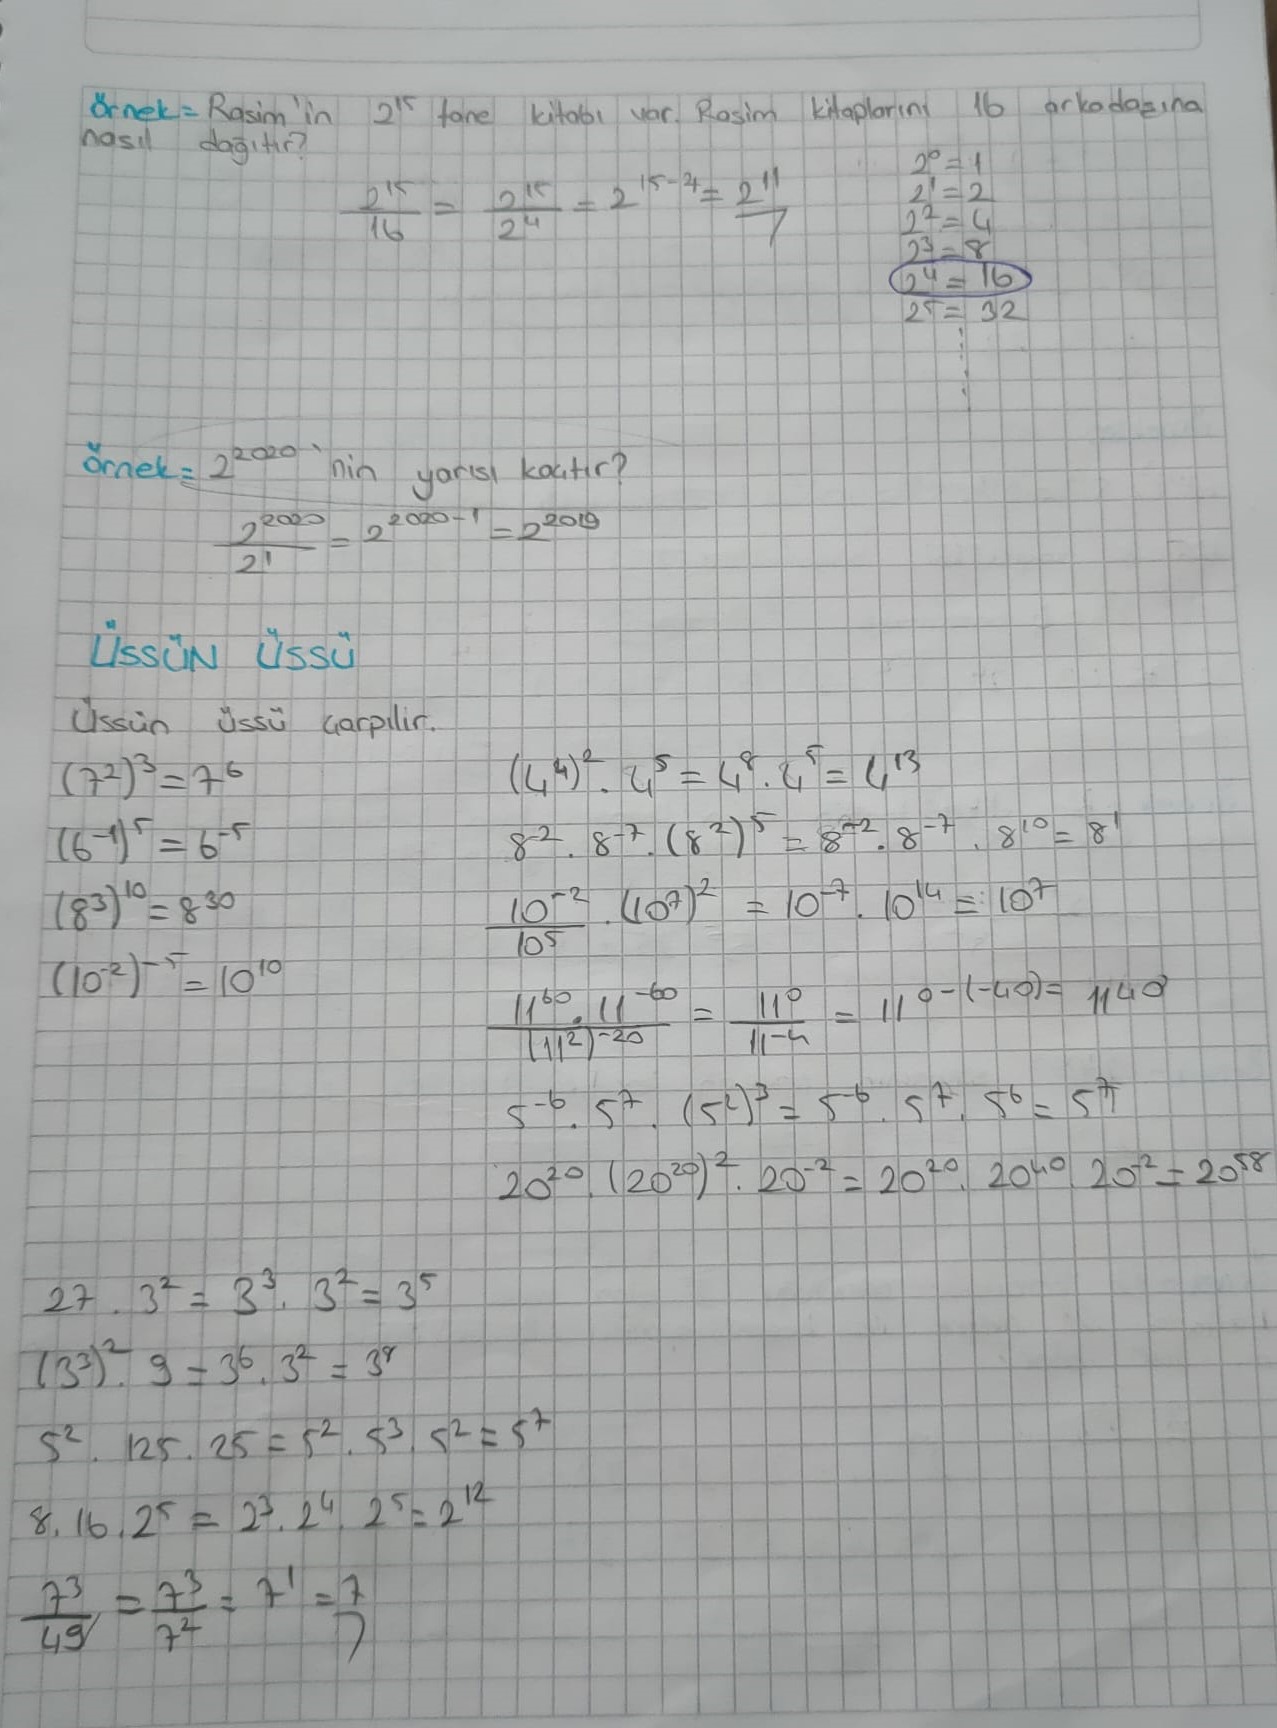 Örnek = Rasim'in 2¹⁵ tane kitabı var. Rasim kitaplarını 16 arkadaşına
nasıl dağıtır?
2¹⁵/16 = 2¹⁵/2⁴ = 2¹⁵⁻⁴ = 2¹¹
2⁰ = 1
2¹ = 2
2² = 4
2³ = 8
2⁴ = 16
2⁵ = 32
Örnek = 2²⁰²⁰'nin yarısı kaçtır?
2²⁰²⁰/2¹ = 2²⁰²⁰⁻¹ = 2²⁰¹⁹
ÜSSÜN ÜSSÜ
Üssün üssü çarpılır.
(7²)³ = 7⁶
(6⁻¹)⁵ = 6⁻⁵
(8³)¹⁰ = 8³⁰
(10⁻²)⁻⁵ = 10¹⁰
(4⁴)² . 4⁵ = 4⁸ . 4⁵ = 4¹³
8⁻² . 8⁻⁷ . (8²)⁵ = 8⁻² . 8⁻⁷ . 8¹⁰ = 8¹
10⁻²/10⁵ . (10⁷)² = 10⁻⁷ . 10¹⁴ = 10⁷
11⁶⁰ . 11⁻⁶⁰/(11²)⁻²⁰ = 11⁰/11⁻⁴ = 11⁰⁻⁽⁻⁴⁰⁾ = 11⁴⁰
5⁻⁶ . 5⁷ . (5²)³ = 5⁻⁶ . 5⁷ . 5⁶ = 5⁷
20²⁰ . (20²⁰)² . 20⁻² = 20²⁰ . 20⁴⁰ . 20⁻² = 20⁵⁸
27 . 3² = 3³ . 3² = 3⁵
(3³)² . 9 = 3⁶ . 3² = 3⁸
5² . 125 . 25 = 5² . 5³ . 5² = 5⁷
8 . 16 . 2⁵ = 2³ . 2⁴ . 2⁵ = 2¹²
7³/49 = 7³/7² = 7¹ = 7